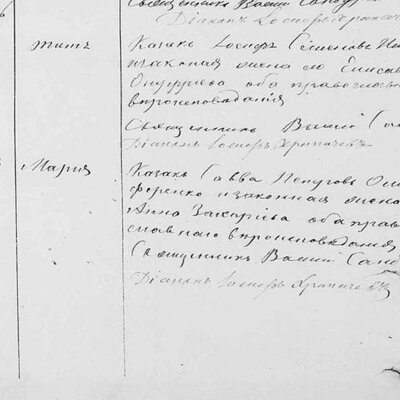 Священникъ Васи
Діаконъ Іосифъ Хрпачев
Титъ
Казакъ Іосифъ Семеновъ
и законная жена его Елиса
Онуфріева оба православ
вероисповеданія
Священникъ Васи
Діаконъ Іосифъ Хрпачевъ
Марія
Казакъ Савва Петровъ Они
ференко и законная жена
Анна Захаріева оба прав
славнаго вероисповеданія
Священникъ Васи
Діаконъ Іосифъ Хрпачевъ